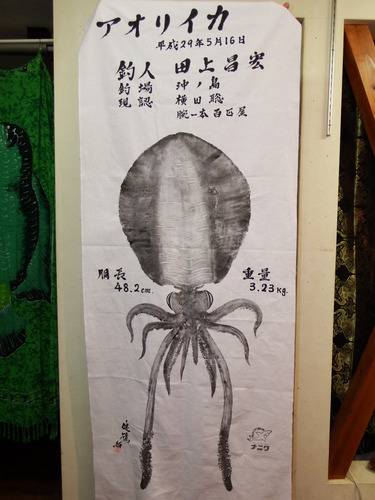 アオリイカ
平成29年5月16日
釣人 田上昌宏
釣場 沖ノ島
現認 横田聡
腕一本百百屋
胴長
48.2cm.
重量
3.23kg.
ナニワ